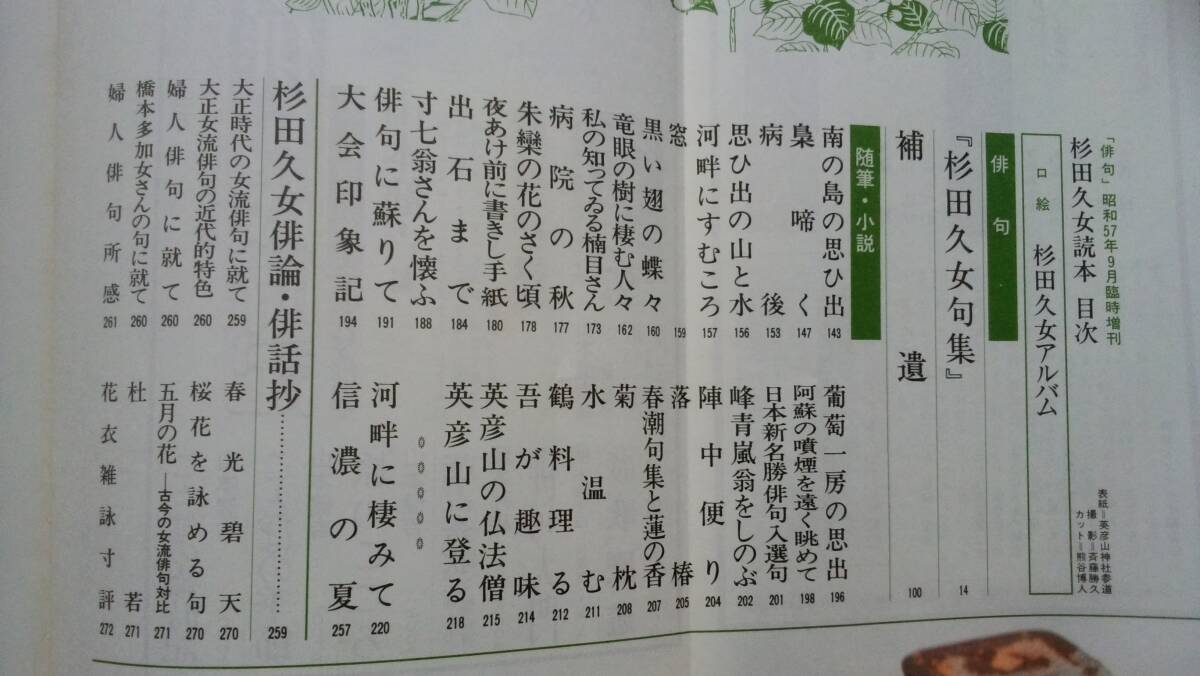 「俳句」昭和57年9月臨時増刊
杉田久女読本 目次
表紙＝英彦山神社参道
撮影＝斉藤勝久
カット＝熊谷博人
口絵 杉田久女アルバム
俳句
『杉田久女句集』 14
補遺 100
随筆・小説
南の島の思ひ出 143
梟啼く 147
病後 153
思ひ出の山と水 156
河畔にすむころ 157
窓 159
黒い翅の蝶々 160
竜眼の樹に棲む人々 162
私の知ってゐる楠目さん 173
病院の秋 177
朱欒の花のさく頃 178
夜あけ前に書きし手紙 180
出石まで 184
寸七翁さんを懐ふ 188
俳句に蘇りて 191
大会印象記 194
葡萄一房の思出 196
阿蘇の噴煙を遠く眺めて 198
日本新名勝俳句入選句 201
峰青嵐翁をしのぶ 202
陣中便り 204
落椿 205
春潮句集と蓮の香 207
菊枕 208
水温む 211
鶴料理る 212
吾が趣味 214
英彦山の仏法僧 215
英彦山に登る 218
河畔に棲みて 220
信濃の夏 257
杉田久女俳論・俳話抄…………… 259
大正時代の女流俳句に就て 259
大正女流俳句の近代的特色 260
婦人俳句に就て 260
橋本多加女さんの句に就て 260
婦人俳句所感 261
春光碧天 270
桜花を詠める句 270
五月の花―古今の女流俳句対比 271
杜若 271
花衣雑詠寸評 272